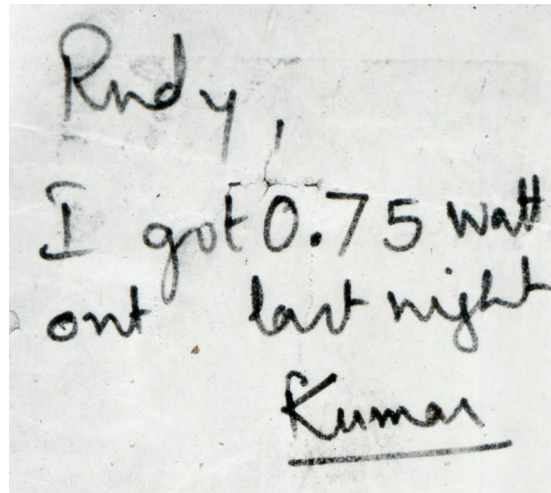 Rudy,
I got 0.75 watt
out last night
Kumar